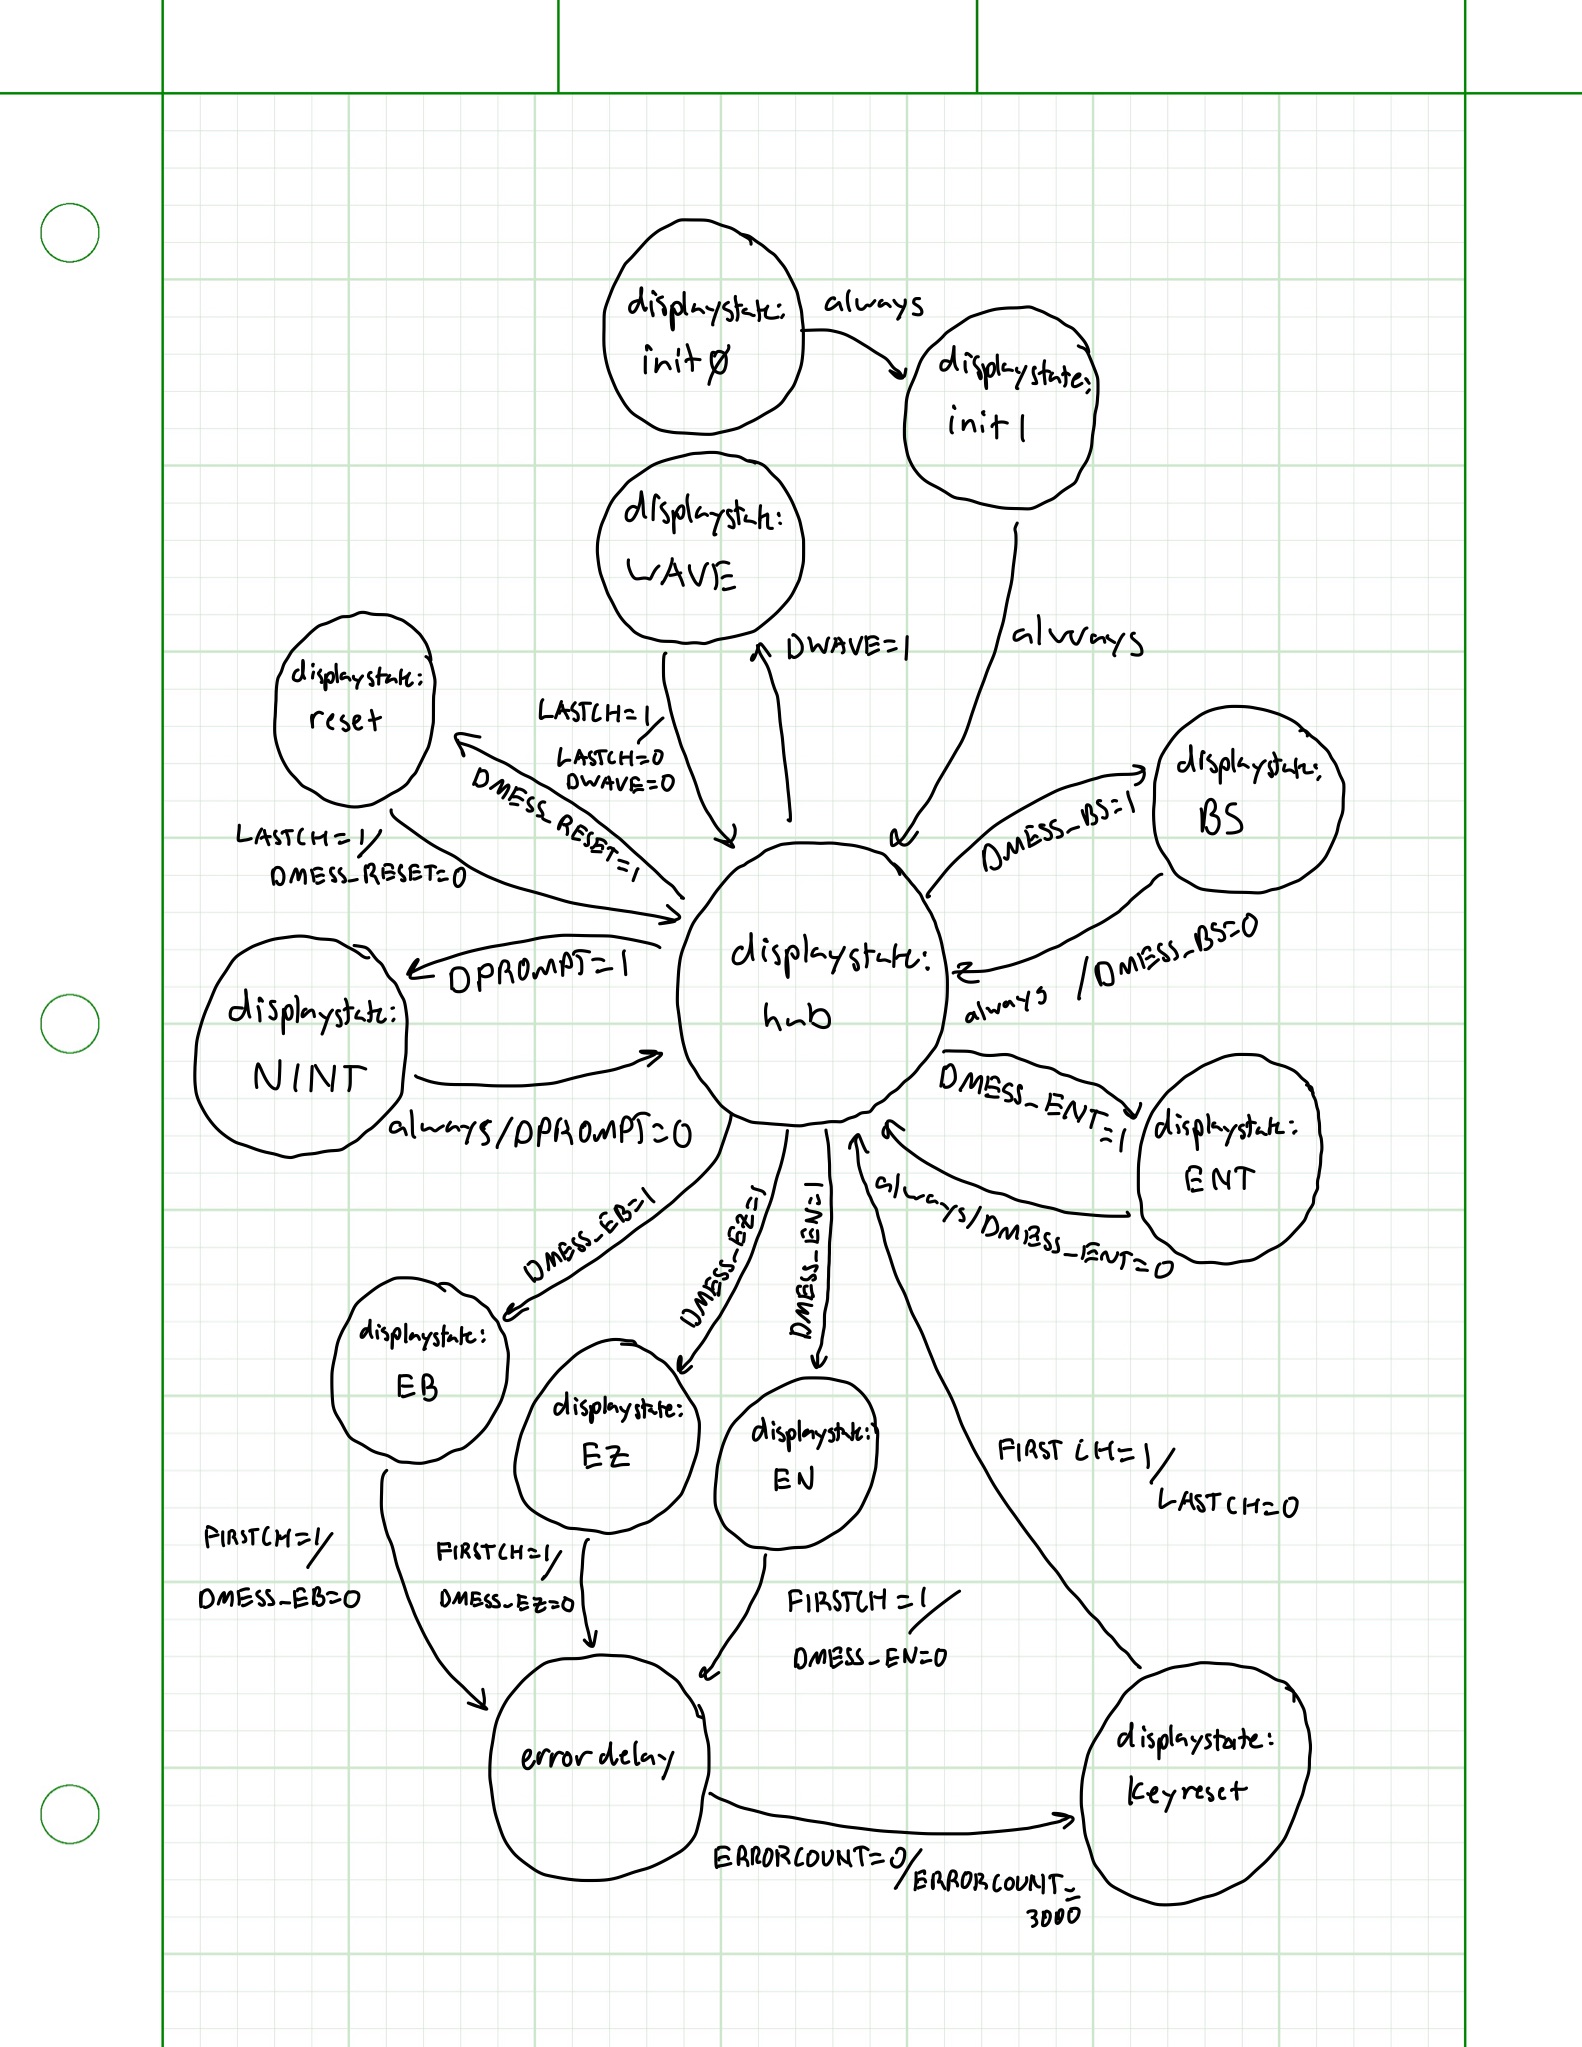 displaystate:
init Ø
always
displaystate:
init 1
displaystate:
WAVE
always
DWAVE=1
LASTCH=1/
LASTCH=0
DWAVE=0
displaystate:
reset
DMESS_RESET=1
LASTCH=1/
DMESS_RESET=0
displaystate:
BS
DMESS_BS=1
always /DMESS_BS=0
displaystate:
hub
DPROMPT=1
displaystate:
NINT
always/DPROMPT=0
DMESS_ENT
=1
displaystate:
ENT
always/DMESS_ENT=0
DMESS_EB=1
DMESS_EZ=1
DMESS_EN=1
displaystate:
EB
displaystate:
EZ
displaystate:
EN
FIRST CH=1/
LASTCH=0
FIRSTCH=1/
DMESS_EB=0
FIRSTCH=1/
DMESS_EZ=0
FIRSTCH=1/
DMESS_EN=0
error delay
displaystate:
Keyreset
ERRORCOUNT=0/ERRORCOUNT=
3000